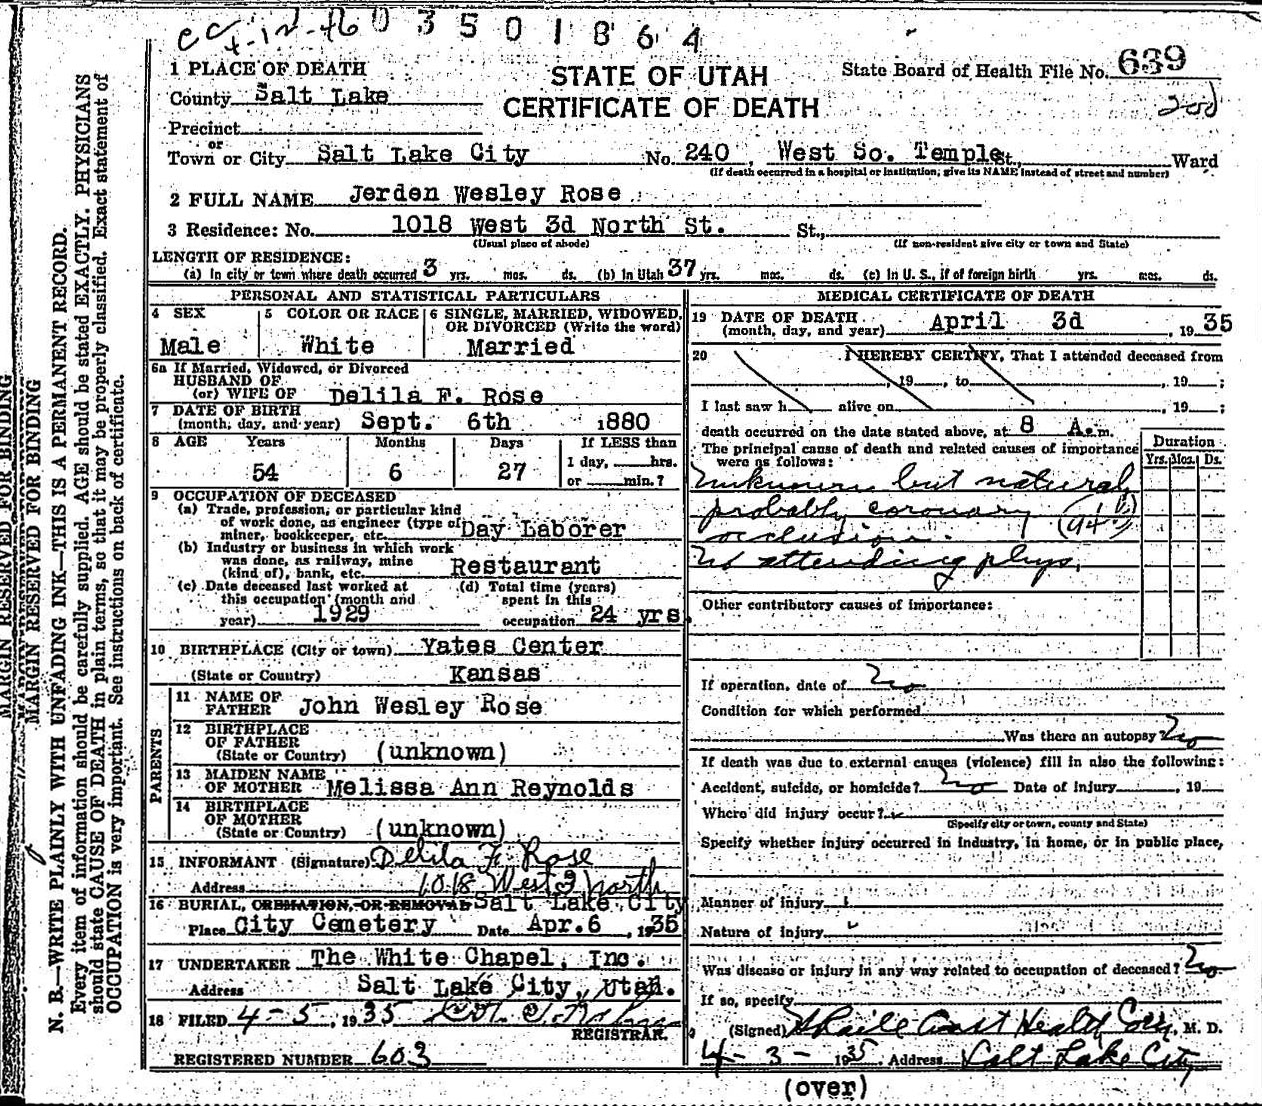 0 3 5 0 1 8 6 4
1 PLACE OF DEATH
STATE OF UTAH
CERTIFICATE OF DEATH
State Board of Health File No. 639
County Salt Lake
Precinct
or
Town or City Salt Lake City No. 240, West So. Temple St., Ward
(If death occurred in a hospital or institution, give its NAME instead of street and number)
2 FULL NAME Jerden Wesley Rose
3 Residence: No. 1018 West 3d North St. St.,
(Usual place of abode) (If non-resident give city or town and State)
LENGTH OF RESIDENCE:
(a) In city or town where death occurred 3 yrs. mos. ds. (b) In Utah 37 yrs. mos. ds. (c) In U. S., if of foreign birth yrs. mos. ds.
PERSONAL AND STATISTICAL PARTICULARS
4 SEX Male
5 COLOR OR RACE White
6 SINGLE, MARRIED, WIDOWED, OR DIVORCED (Write the word) Married
6a If Married, Widowed, or Divorced
HUSBAND OF
(or) WIFE OF Delila F. Rose
7 DATE OF BIRTH
(month, day, and year) Sept. 6th 1880
8 AGE Years Months Days If LESS than
54 6 27 1 day, hrs.
or min.?
9 OCCUPATION OF DECEASED
(a) Trade, profession, or particular kind
of work done, as engineer (type of
miner, bookkeeper, etc. Day Laborer
(b) Industry or business in which work
was done, as railway, mine
(kind of), bank, etc. Restaurant
(c) Date deceased last worked at
this occupation (month and
year) 1929
(d) Total time (years)
spent in this
occupation 24 yrs.
10 BIRTHPLACE (City or town) Yates Center
(State or Country) Kansas
PARENTS
11 NAME OF
FATHER John Wesley Rose
12 BIRTHPLACE
OF FATHER
(State or Country) (unknown)
13 MAIDEN NAME
OF MOTHER Melissa Ann Reynolds
14 BIRTHPLACE
OF MOTHER
(State or Country) (unknown)
15 INFORMANT (Signature) Delila F. Rose
Address 1018 West 3 North
16 BURIAL, CREMATION, OR REMOVAL Salt Lake City
Place City Cemetery Date Apr. 6, 1935
17 UNDERTAKER The White Chapel, Inc.
Address Salt Lake City, Utah.
18 FILED 4-5, 1935
REGISTRAR.
REGISTERED NUMBER 603
MEDICAL CERTIFICATE OF DEATH
19 DATE OF DEATH
(month, day, and year) April 3d, 1935
20 I HEREBY CERTIFY, That I attended deceased from
, 19 , to , 19 ;
I last saw h alive on , 19 ;
death occurred on the date stated above, at 8 A. m.
The principal cause of death and related causes of importance
were as follows:
Duration
Yrs. Mos. Ds.
Unknown but natural
probably coronary
occlusion.
No attending phys.
Other contributory causes of importance:
If operation, date of No
Condition for which performed
Was there an autopsy? No
If death was due to external causes (violence) fill in also the following:
Accident, suicide, or homicide? No Date of injury , 19
Where did injury occur?
(Specify city or town, county and State)
Specify whether injury occurred in industry, in home, or in public place,
Manner of injury
Nature of injury
Was disease or injury in any way related to occupation of deceased? No
If so, specify
(Signed) M. D.
4-3-1935 Address Salt Lake City
(over)
MARGIN RESERVED FOR BINDING
MARGIN RESERVED FOR BINDING
N. B.—WRITE PLAINLY WITH UNFADING INK—THIS IS A PERMANENT RECORD.
Every item of information should be carefully supplied. AGE should be stated EXACTLY. PHYSICIANS
should state CAUSE OF DEATH in plain terms, so that it may be properly classified. Exact statement of
OCCUPATION is very important. See instructions on back of certificate.